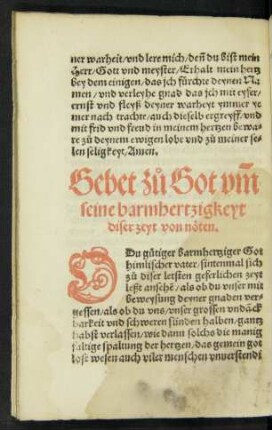 ner warheit/vnd lere mich/deñ du bist mein
Herr/Gott vnd meyster/Erhalt mein hertz
bey dem einigen/das jch fürchte deynen Na-
men/vnd verleyhe gnad das jch mit eyfer/
ernst vnd fleyß deyner warheyt ymmer ye
mer nach trachte/auch dieselb ergreyff/vnd
mit frid vnd freud in meinem hertzen bewa-
re zů deynem ewigen lobe vnd zů meiner see-
len seligkeyt/Amen.
Gebet zů Got vm̃
seine barmhertzigkeyt
diser zeyt von nöten.
O Du gütiger barmhertziger Got
himlischer vater/sintenmal sich
zů diser letsten geferlichen zeyt
leßt ansehē/als ob du vnser mit
beweysung deyner gnaden ver-
gessen/als ob du vns/vnser grossen vndāck
barkeit vnd schweren sünden halben/gantz
habst verlassen/wie dann solchs die manig
faltige spaltung der hertzen/das gemein got
loß wesen auch viler menschen vnuerstendi